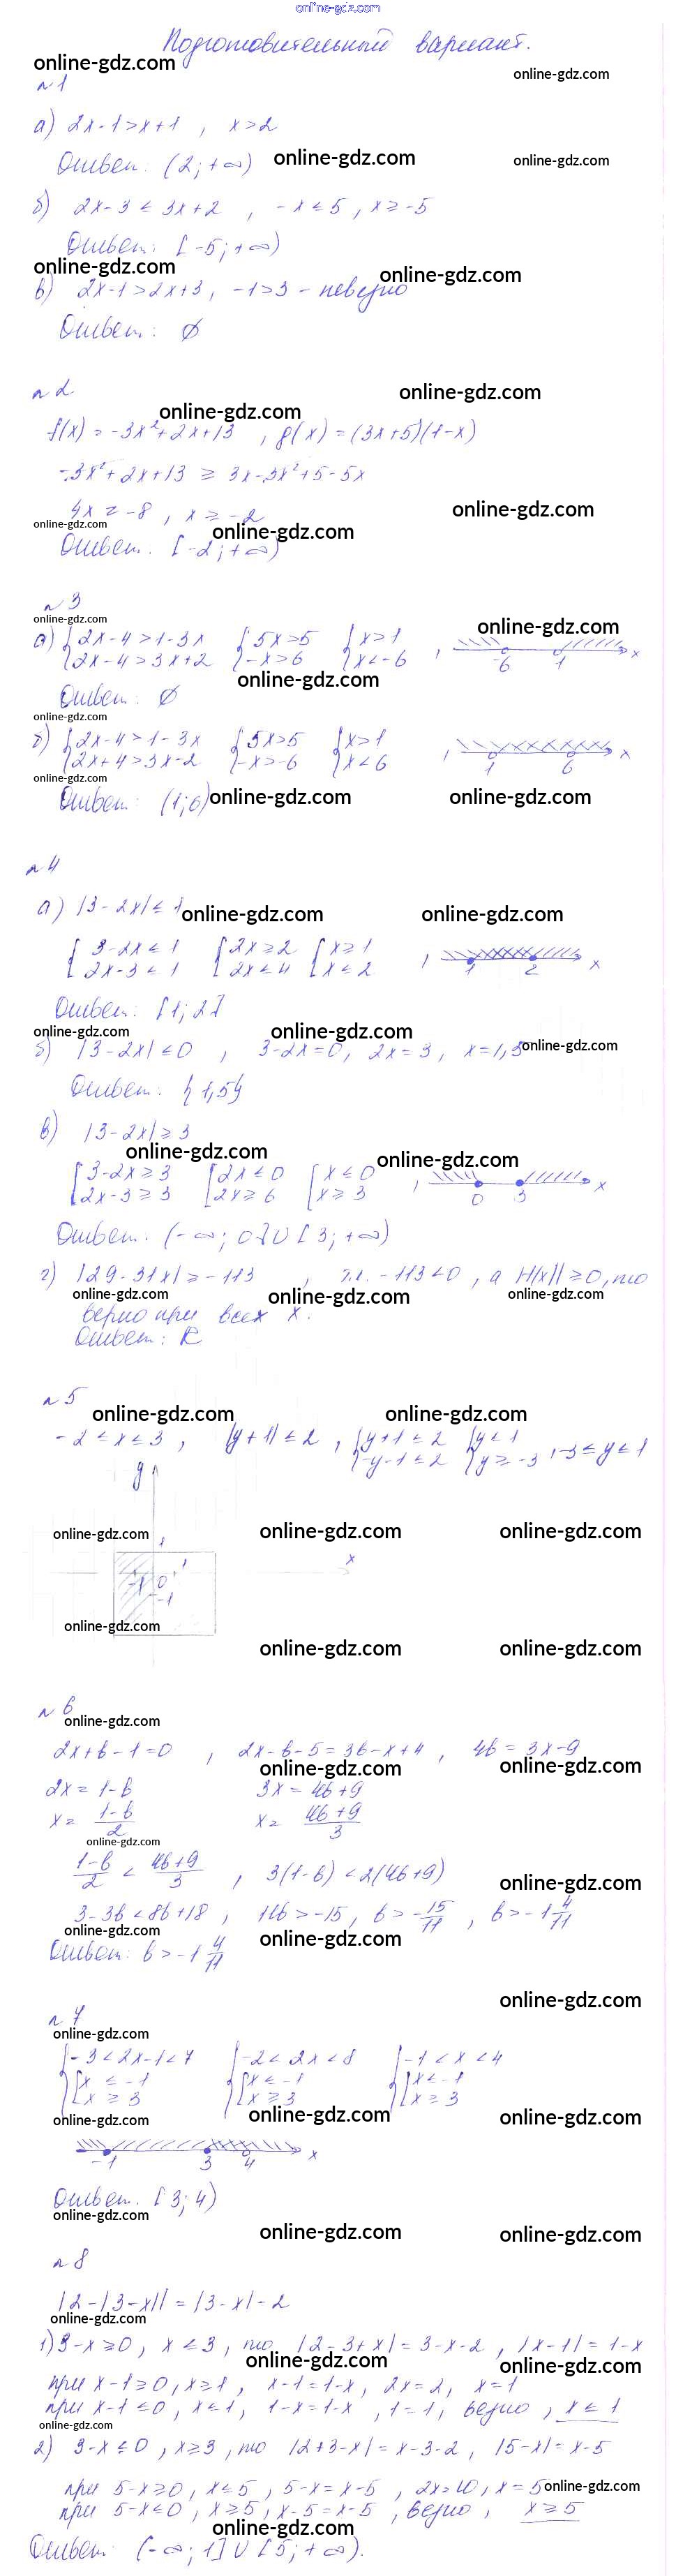 online-gdz.com
Подготовительный вариант.
online-gdz.com
online-gdz.com
№1
а) 2x-1>x+1 , x>2
Ответ: (2;+∞)
online-gdz.com
online-gdz.com
б) 2x-3 ≤ 3x+2 , -x ≤ 5 , x ≥ -5
Ответ: [-5;+∞)
online-gdz.com
online-gdz.com
в) 2x-1>2x+3, -1>3 - неверно
Ответ: ∅
№2
online-gdz.com
online-gdz.com
f(x) = -3x²+2x+13 , g(x) = (3x+5)(1-x)
-3x²+2x+13 ≥ 3x-3x²+5-5x
online-gdz.com
4x ≥ -8 , x ≥ -2
online-gdz.com
online-gdz.com
Ответ: [-2;+∞)
№3
online-gdz.com
online-gdz.com
а) {2x-4>1-3x {5x>5 {x>1
{2x-4>3x+2 {-x>6 {x<-6 , -6 1 x
online-gdz.com
Ответ: ∅
online-gdz.com
б) {2x-4>1-3x {5x>5 {x>1
{2x+4>3x-2 {-x>-6 {x<6 , 1 6 x
online-gdz.com
Ответ: (1;6)
online-gdz.com
online-gdz.com
№4
а) |3-2x| ≤ 1
online-gdz.com
online-gdz.com
{3-2x ≤ 1 {2x ≥ 2 {x ≥ 1
{2x-3 ≤ 1 {2x ≤ 4 {x ≤ 2 , 1 2 x
Ответ: [1;2]
online-gdz.com
online-gdz.com
online-gdz.com
б) |3-2x| ≤ 0 , 3-2x=0, 2x=3, x=1,5
Ответ: {1,5}
в) |3-2x| ≥ 3
online-gdz.com
online-gdz.com
[3-2x ≥ 3 [2x ≤ 0 [x ≤ 0
[2x-3 ≥ 3 [2x ≥ 6 [x ≥ 3 , 0 3 x
Ответ: (-∞;0]∪[3;+∞)
г) |29-31x| ≥ -113 , т.к. -113<0 , а |f(x)| ≥ 0, то
online-gdz.com
online-gdz.com
online-gdz.com
верно при всех x.
Ответ: R
№5
online-gdz.com
online-gdz.com
-2 ≤ x ≤ 3 , |y+1| ≤ 2 , {y+1 ≤ 2 {y ≤ 1
{-y-1 ≤ 2 {y ≥ -3 , -3 ≤ y ≤ 1
y
online-gdz.com
online-gdz.com
online-gdz.com
1
x
-1 0 1
-1
online-gdz.com
online-gdz.com
online-gdz.com
№6
online-gdz.com
2x+b-1=0 , 2x-b-5=3b-x+4 , 4b=3x-9
online-gdz.com
online-gdz.com
2x = 1-b 3x = 4b+9
x = (1-b)/2 x = (4b+9)/3
online-gdz.com
(1-b)/2 < (4b+9)/3 , 3(1-b) < 2(4b+9)
online-gdz.com
3-3b<8b+18 , 11b>-15, b>-15/11 , b>-1 4/11
online-gdz.com
online-gdz.com
Ответ: b>-1 4/11
online-gdz.com
№7
online-gdz.com
{-3<2x-1<7 {-2<2x<8 {-1<x<4
[x ≤ -1 [x ≤ -1 [x ≤ -1
[x ≥ 3 [x ≥ 3 [x ≥ 3
online-gdz.com
online-gdz.com
online-gdz.com
-1 3 4 x
Ответ: [3;4)
online-gdz.com
online-gdz.com
online-gdz.com
№8
|2-|3-x|| = |3-x|-2
online-gdz.com
1) 3-x ≥ 0, x ≤ 3, то |2-3+x| = 3-x-2 , |x-1| = 1-x
online-gdz.com
online-gdz.com
при x-1 ≥ 0, x ≥ 1, x-1=1-x, 2x=2, x=1
при x-1 ≤ 0, x ≤ 1, 1-x=1-x , 1=1, верно , x ≤ 1
online-gdz.com
2) 3-x ≤ 0 , x ≥ 3 , то |2+3-x| = x-3-2 , |5-x| = x-5
при 5-x ≥ 0, x ≤ 5 , 5-x=x-5 , 2x=10, x=5
online-gdz.com
при 5-x ≤ 0, x ≥ 5, x-5=x-5 , верно , x ≥ 5
online-gdz.com
Ответ: (-∞;1]∪[5;+∞).